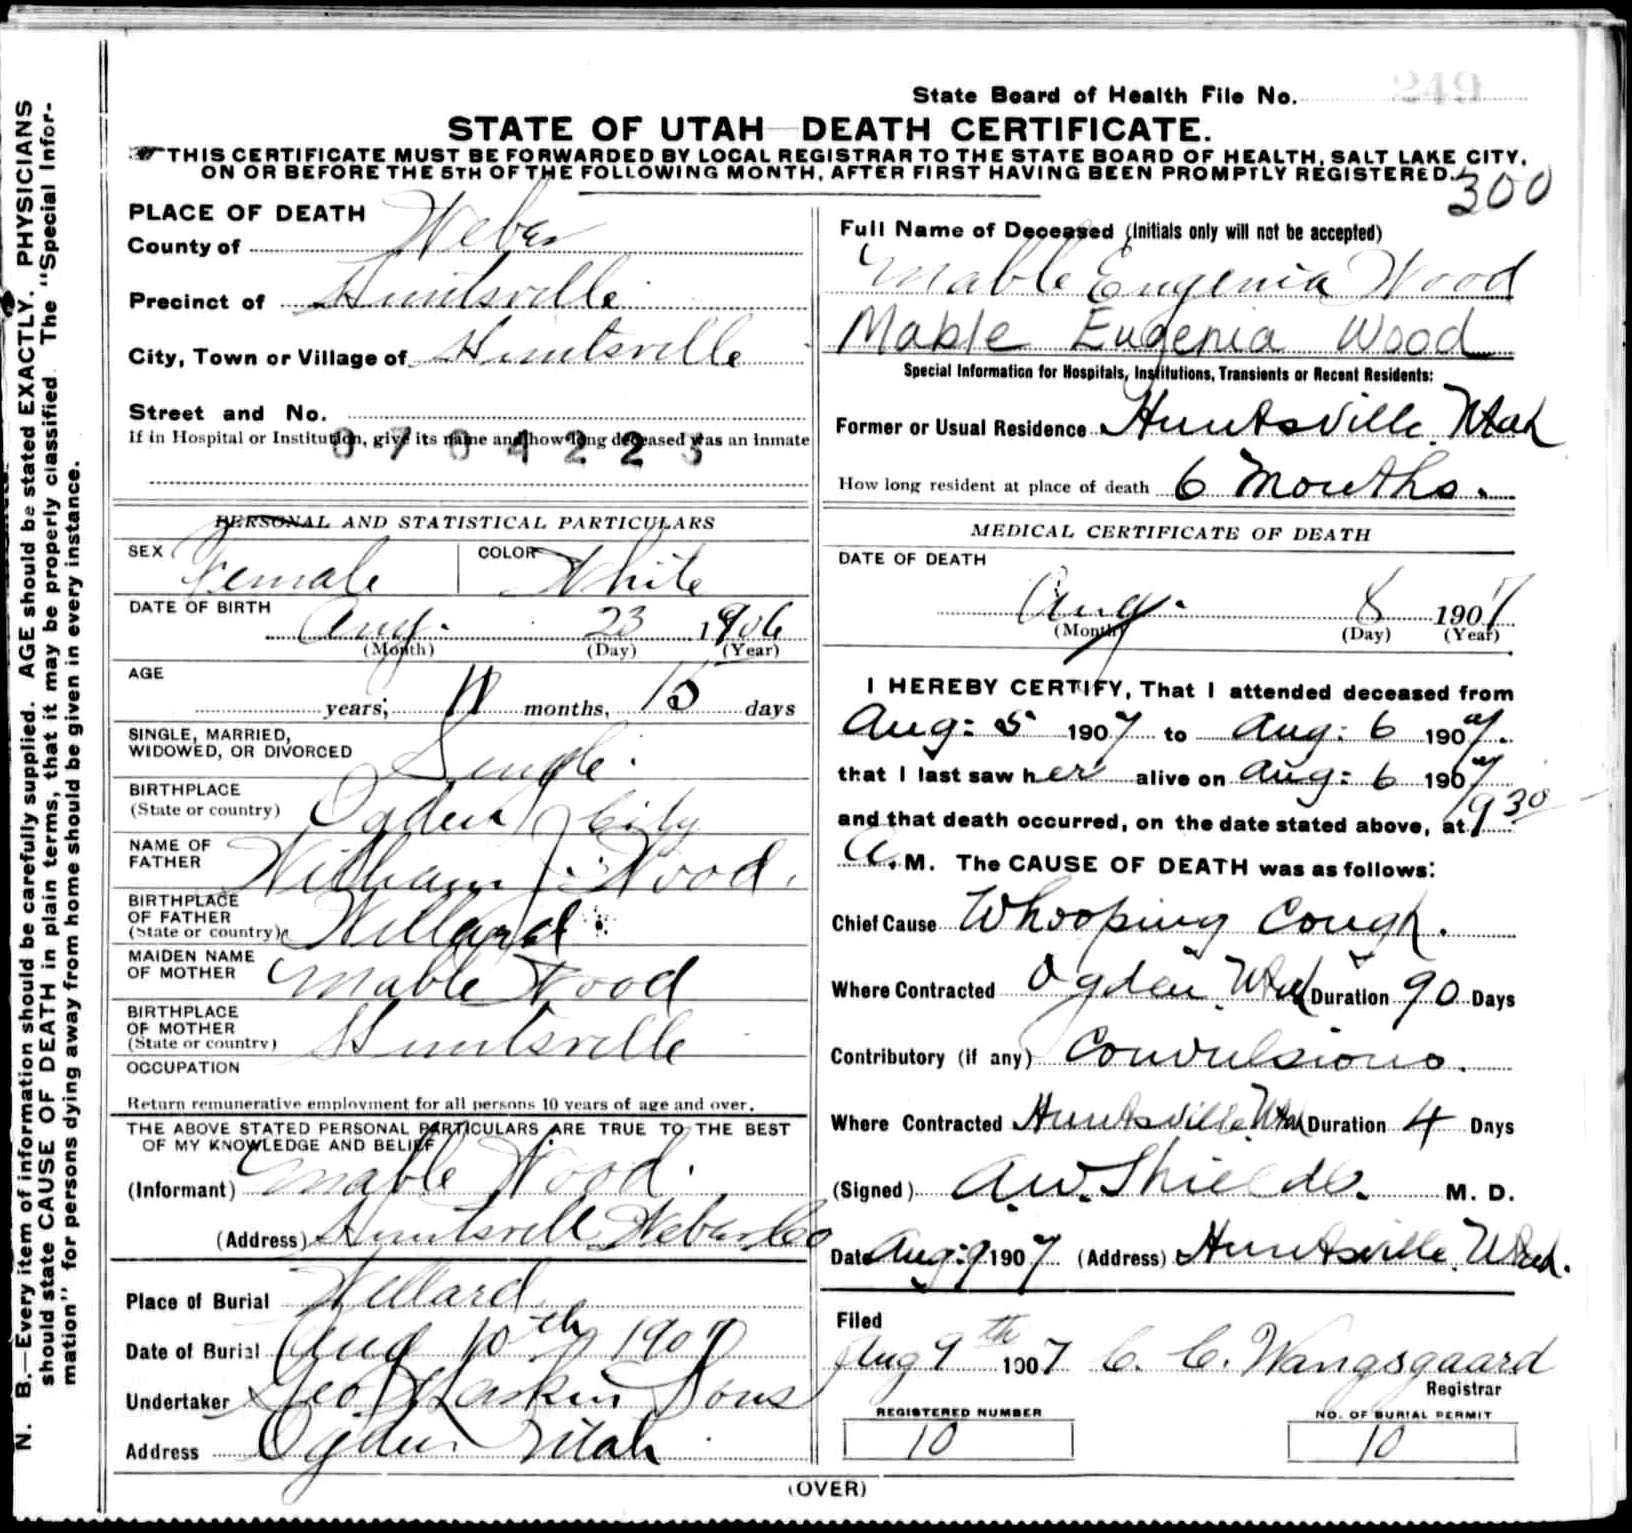 State Board of Health File No. 249
STATE OF UTAH—DEATH CERTIFICATE.
THIS CERTIFICATE MUST BE FORWARDED BY LOCAL REGISTRAR TO THE STATE BOARD OF HEALTH, SALT LAKE CITY,
ON OR BEFORE THE 5TH OF THE FOLLOWING MONTH, AFTER FIRST HAVING BEEN PROMPTLY REGISTERED.
300
PLACE OF DEATH
County of Weber
Precinct of Huntsville
City, Town or Village of Huntsville
Street and No.
If in Hospital or Institution, give its name and how long deceased was an inmate
0704223
PERSONAL AND STATISTICAL PARTICULARS
SEX Female COLOR White
DATE OF BIRTH
Aug. 23 1906
(Month) (Day) (Year)
AGE
years; 11 months, 15 days
SINGLE, MARRIED,
WIDOWED, OR DIVORCED Single.
BIRTHPLACE
(State or country) Ogden City
NAME OF
FATHER William J. Wood.
BIRTHPLACE
OF FATHER
(State or country) Willard
MAIDEN NAME
OF MOTHER Mable Wood
BIRTHPLACE
OF MOTHER
(State or country) Huntsville
OCCUPATION
Return remunerative employment for all persons 10 years of age and over.
THE ABOVE STATED PERSONAL PARTICULARS ARE TRUE TO THE BEST
OF MY KNOWLEDGE AND BELIEF
(Informant) Mable Wood.
(Address) Huntsvill Weber Co
Place of Burial Willard
Date of Burial Aug 10th 1907
Undertaker Geo Larkin Sons
Address Ogden Utah
Full Name of Deceased (Initials only will not be accepted)
Mable Eugenia Wood
Mable Eugenia Wood
Special Information for Hospitals, Institutions, Transients or Recent Residents:
Former or Usual Residence Huntsville. Utah
How long resident at place of death 6 Months.
MEDICAL CERTIFICATE OF DEATH
DATE OF DEATH
Aug. 8 1907
(Month) (Day) (Year)
I HEREBY CERTIFY, That I attended deceased from
Aug: 5 1907 to Aug: 6 1907.
that I last saw her alive on Aug: 6 1907
and that death occurred, on the date stated above, at 9 30
A. M. The CAUSE OF DEATH was as follows:
Chief Cause Whooping Cough.
Where Contracted Ogden Utah Duration 90 Days
Contributory (if any) Convulsions.
Where Contracted Huntsville Utah Duration 4 Days
(Signed) A.W. Shields. M. D.
Date Aug: 9 1907 (Address) Huntsville. Utah.
Filed
Aug 9th 1907 C. C. Wangsgaard
Registrar
REGISTERED NUMBER
10
NO. OF BURIAL PERMIT
10
(OVER)
N. B.—Every item of information should be carefully supplied. AGE should be stated EXACTLY. PHYSICIANS
should state CAUSE OF DEATH in plain terms, that it may be properly classified. The "Special Infor-
mation" for persons dying away from home should be given in every instance.